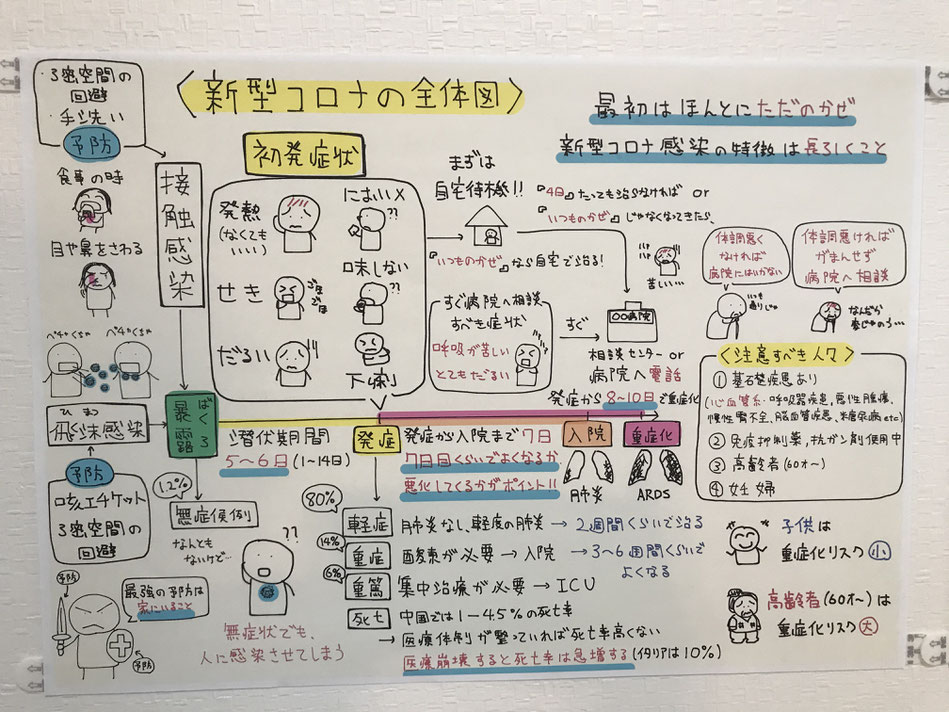 ・3密空間の
回避
・手洗い
予防
食事の時
目や鼻をさわる
接触感染
〈新型コロナの全体図〉
最初はほんとにただのかぜ
新型コロナ感染の特徴は長引くこと
初発症状
発熱
(なくても
いい)
におい×
??
せき
ゴホ
ゴホ
味しない
??
だるい
下痢
まずは
自宅待機!!
『いつものかぜ』なら自宅で治る!
『4日』たっても治らなければ or
『いつものかぜ』じゃなくなってきたら、
苦しい…
すぐ病院へ相談
すべき症状
呼吸が苦しい
とてもだるい
すぐ
〇〇病院
相談センター or
病院へ電話
体調悪く
なければ
病院にはいかない
いつも
通りじゃ
体調悪ければ
がまんせず
病院へ相談
なんだか
変じゃのう…
〈注意すべき人々〉
① 基礎疾患あり
(心血管系・呼吸器疾患、悪性腫瘍、
慢性腎不全、脳血管疾患、糖尿病etc)
② 免疫抑制薬、抗ガン剤使用中
③ 高齢者(60才〜)
④ 妊婦
ペチャクチャ
ペチャクチャ
ひまつ
飛沫感染
予防
咳エチケット
3密空間の
回避
暴露
ばくろ
潜伏期間
5〜6日(1〜14日)
発症
発症から入院まで7日
7日目くらいでよくなるか
悪化してくるかがポイント!!
発症から8〜10日で重症化
入院
重症化
肺炎
ARDS
1.2%
無症候例
なんとも
ないけど…
??
無症状でも、
人に感染させてしまう
予防
最強の予防は
家にいること
予防
80%
軽症
肺炎なし、軽度の肺炎 → 2週間くらいで治る
14%
重症
酸素が必要 → 入院 → 3〜6週間くらいで
よくなる
6%
重篤
集中治療が必要 → ICU
死亡
中国では1〜4.5%の死亡率
→ 医療体制が整っていれば死亡率高くない
医療崩壊すると死亡率は急増する(イタリアは10%)
子供は
重症化リスク小
高齢者(60才〜)は
重症化リスク大